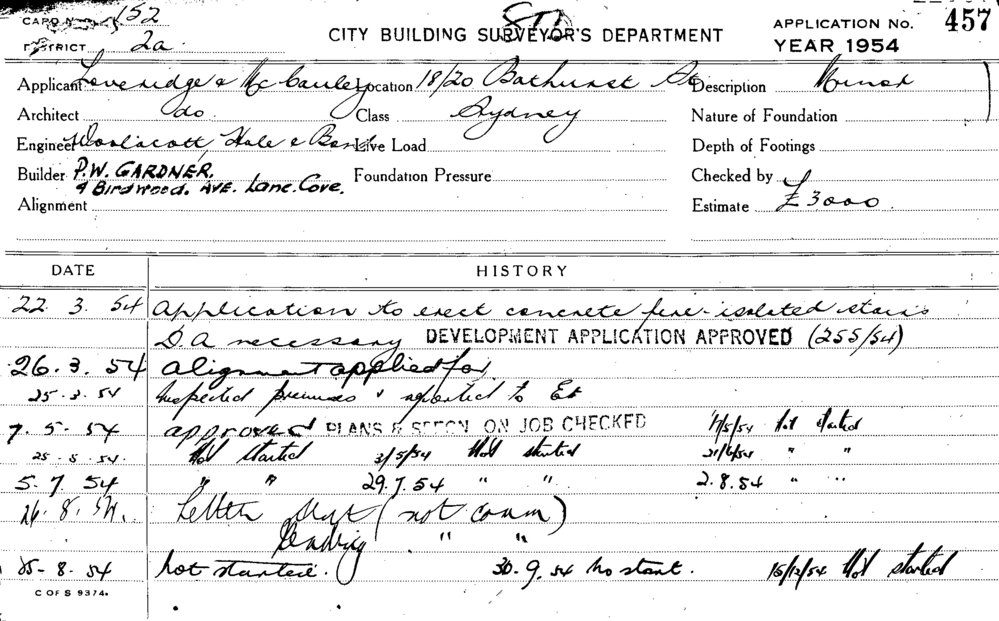 CARD No. 152
DISTRICT 2a.
CITY BUILDING SURVEYOR'S DEPARTMENT
APPLICATION No. 457
YEAR 1954
Applicant Loveridge & McCauley Location 18/20 Bathurst St Description Minor
Architect do. Class Sydney Nature of Foundation
Engineer Woolacott, Hale & Live Load Depth of Footings
Builder P.W. GARDNER, Foundation Pressure Checked by
9 Birdwood. AVE. Lane. Cove.
Alignment Estimate £3000
DATE HISTORY
22. 3. 54 Application to erect concrete fire-isolated stairs
D.A necessary DEVELOPMENT APPLICATION APPROVED (255/54)
26. 3. 54 Alignment applied for
25-3.54 Inspected premises & reported to
7. 5- 54 approved PLANS & SPECN. ON JOB CHECKED 17/5/54 Not started
25.5.54. Not started 3/5/54 Not started 21/6/54 " "
5.7.54 " " 29.7.54 " " 2.8.54 " "
26.8.54. Letter (not comm)
Pending " "
25-8.54 not started. 30.9.54 No start. 15/12/54 Not started
C OF S 9374.